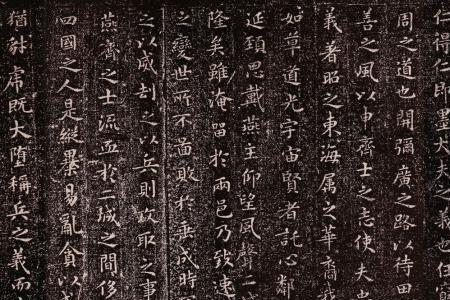 仁得仁即墨大夫之義也任窮
周之道也開彌廣之路以待田
善之風以申齊士之志使夫忠
義著昭之東海属之華裔我
如草道光宇宙賢者託心鄰
延頸思戴燕主仰望風聲二
隆矣雖淹留於兩邑乃致速
之變世所不啚敗於垂成時
之以威劫之以兵則攻取之事
燕齊之士流血於二城之間侈
四國之人是縱暴易亂貪以成
猶豺虎既大墮稱兵之義而